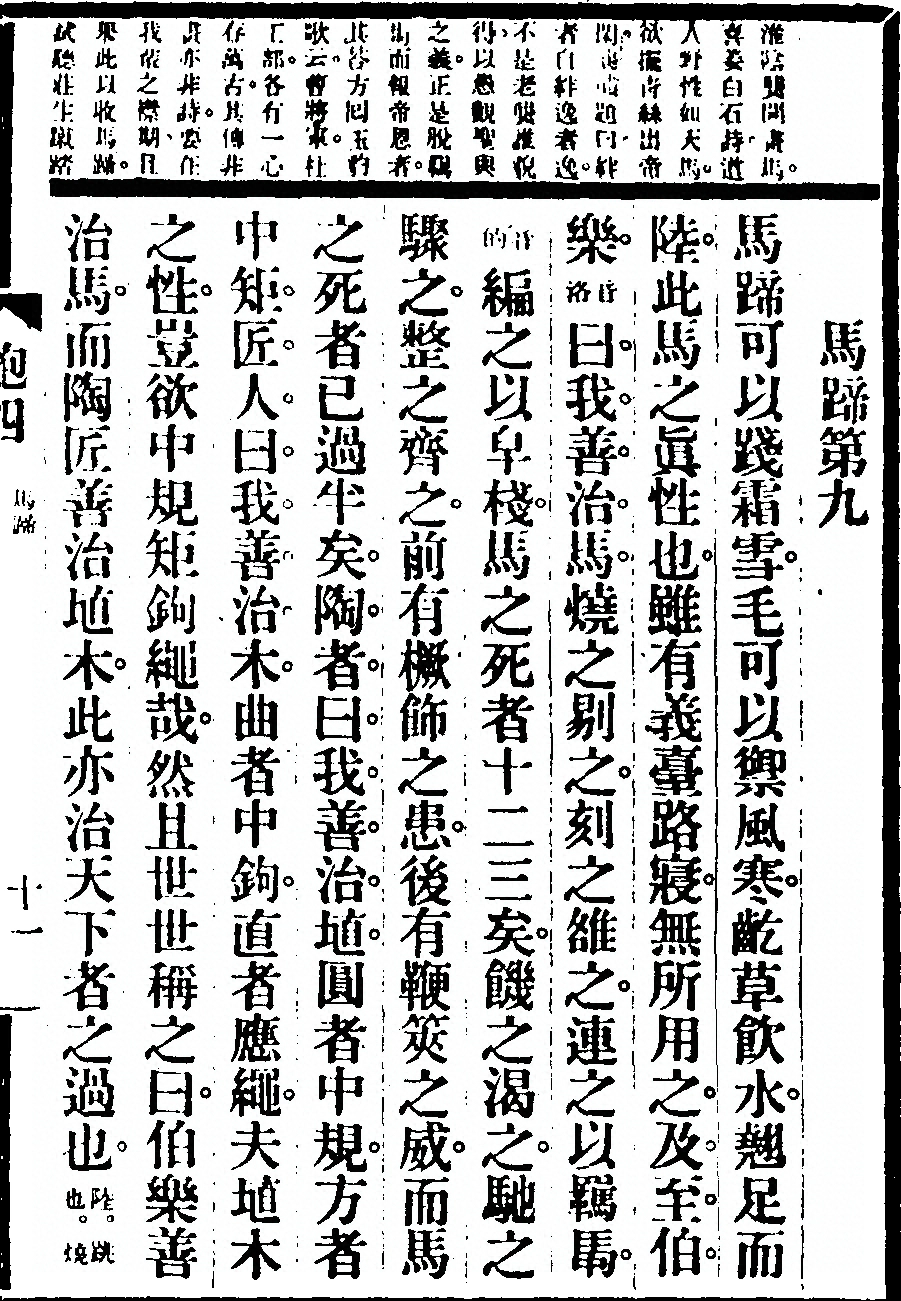 淮陰龔開畫馬。
喜姜白石詩道
人野性如天馬。
欲擺青絲出帝
題曰絆
者自絆逸者逸。
不是老龔誰貌
得。以愚觀聖與
之義。正是脫羈
馬而報帝恩者。
其答方囘玉豹
歌云。曹將軍。杜
工部。各有一心
存萬古。其傳非
畫亦非詩。要在
我輩之襟期。且
舉此以收馬蹄。
試聽莊生蹴踏
馬蹄第九
馬蹄可以踐霜雪。毛可以禦風寒。齕草飲水。翹足而
陸。此馬之眞性也。雖有義臺路寢。無所用之。及至。伯。
樂。音洛曰。我。善。治。馬。燒之剔之。刻之雒之。連之以羈馬。
音的編之以皁棧。馬之死者十二三矣。饑之渴之。馳之
驟之。整之齊之。前有橛飾之患。後有鞭筴之威。而馬
之死者已過半矣。陶者。曰。我。善。治。埴。圓者中規。方者
中矩。匠。人。曰。我。善。治。木。曲者中鉤。直者應繩。夫埴木
之性。豈欲中規矩鉤繩哉。然且世世稱之曰。伯樂善
治馬。而陶匠善治埴木。此亦治天下者之過也。陸。跳也。燒
四
馬蹄
十一